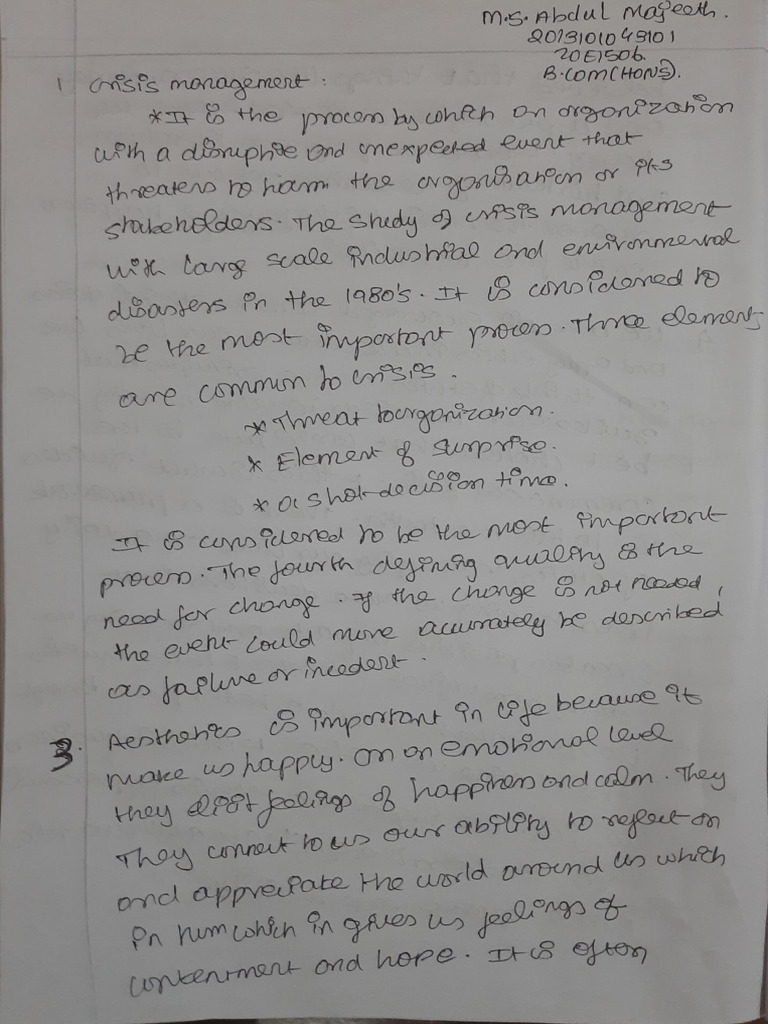 M.S. Abdul Majeeth.
2013101043101
20E1506
B.COM(HONS).
1 Crisis management :
*It is the process by which an organization
with a disruptive and unexpected event that
threatens to harm the organisation or its
stakeholders. The study of crisis management
with large scale industrial and environmental
disasters in the 1980's. It is considered to
be the most important process. Three elements
are common to crisis.
* Threat to organization.
* Element of surprise.
* a short decision time.
It is considered to be the most important
process. The fourth defining quality is the
need for change. If the change is not needed,
the event could more accurately be described
as failure or incedent.
3. Aesthetics is important in life because it
make us happy. On an emotional level
they elicit feelings of happiness and calm. They
They connect to us our ability to reflect on
and appreciate the world around us which
in turn which in gives us feelings of
contentment and hope. It is often